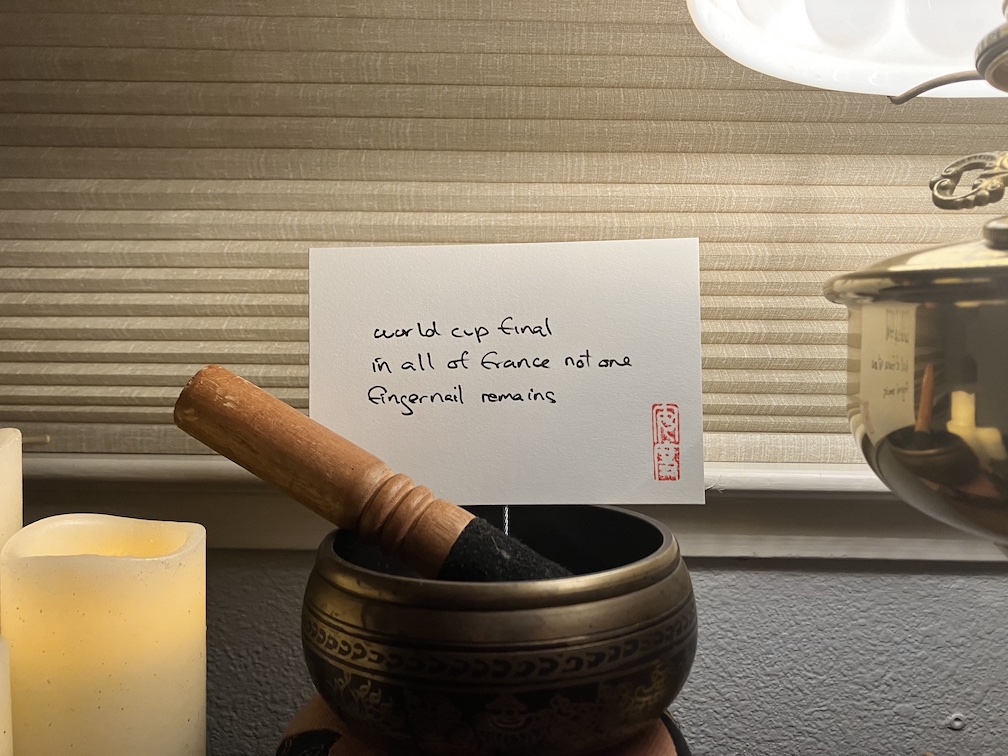 world cup final
in all of france not one
fingernail remains